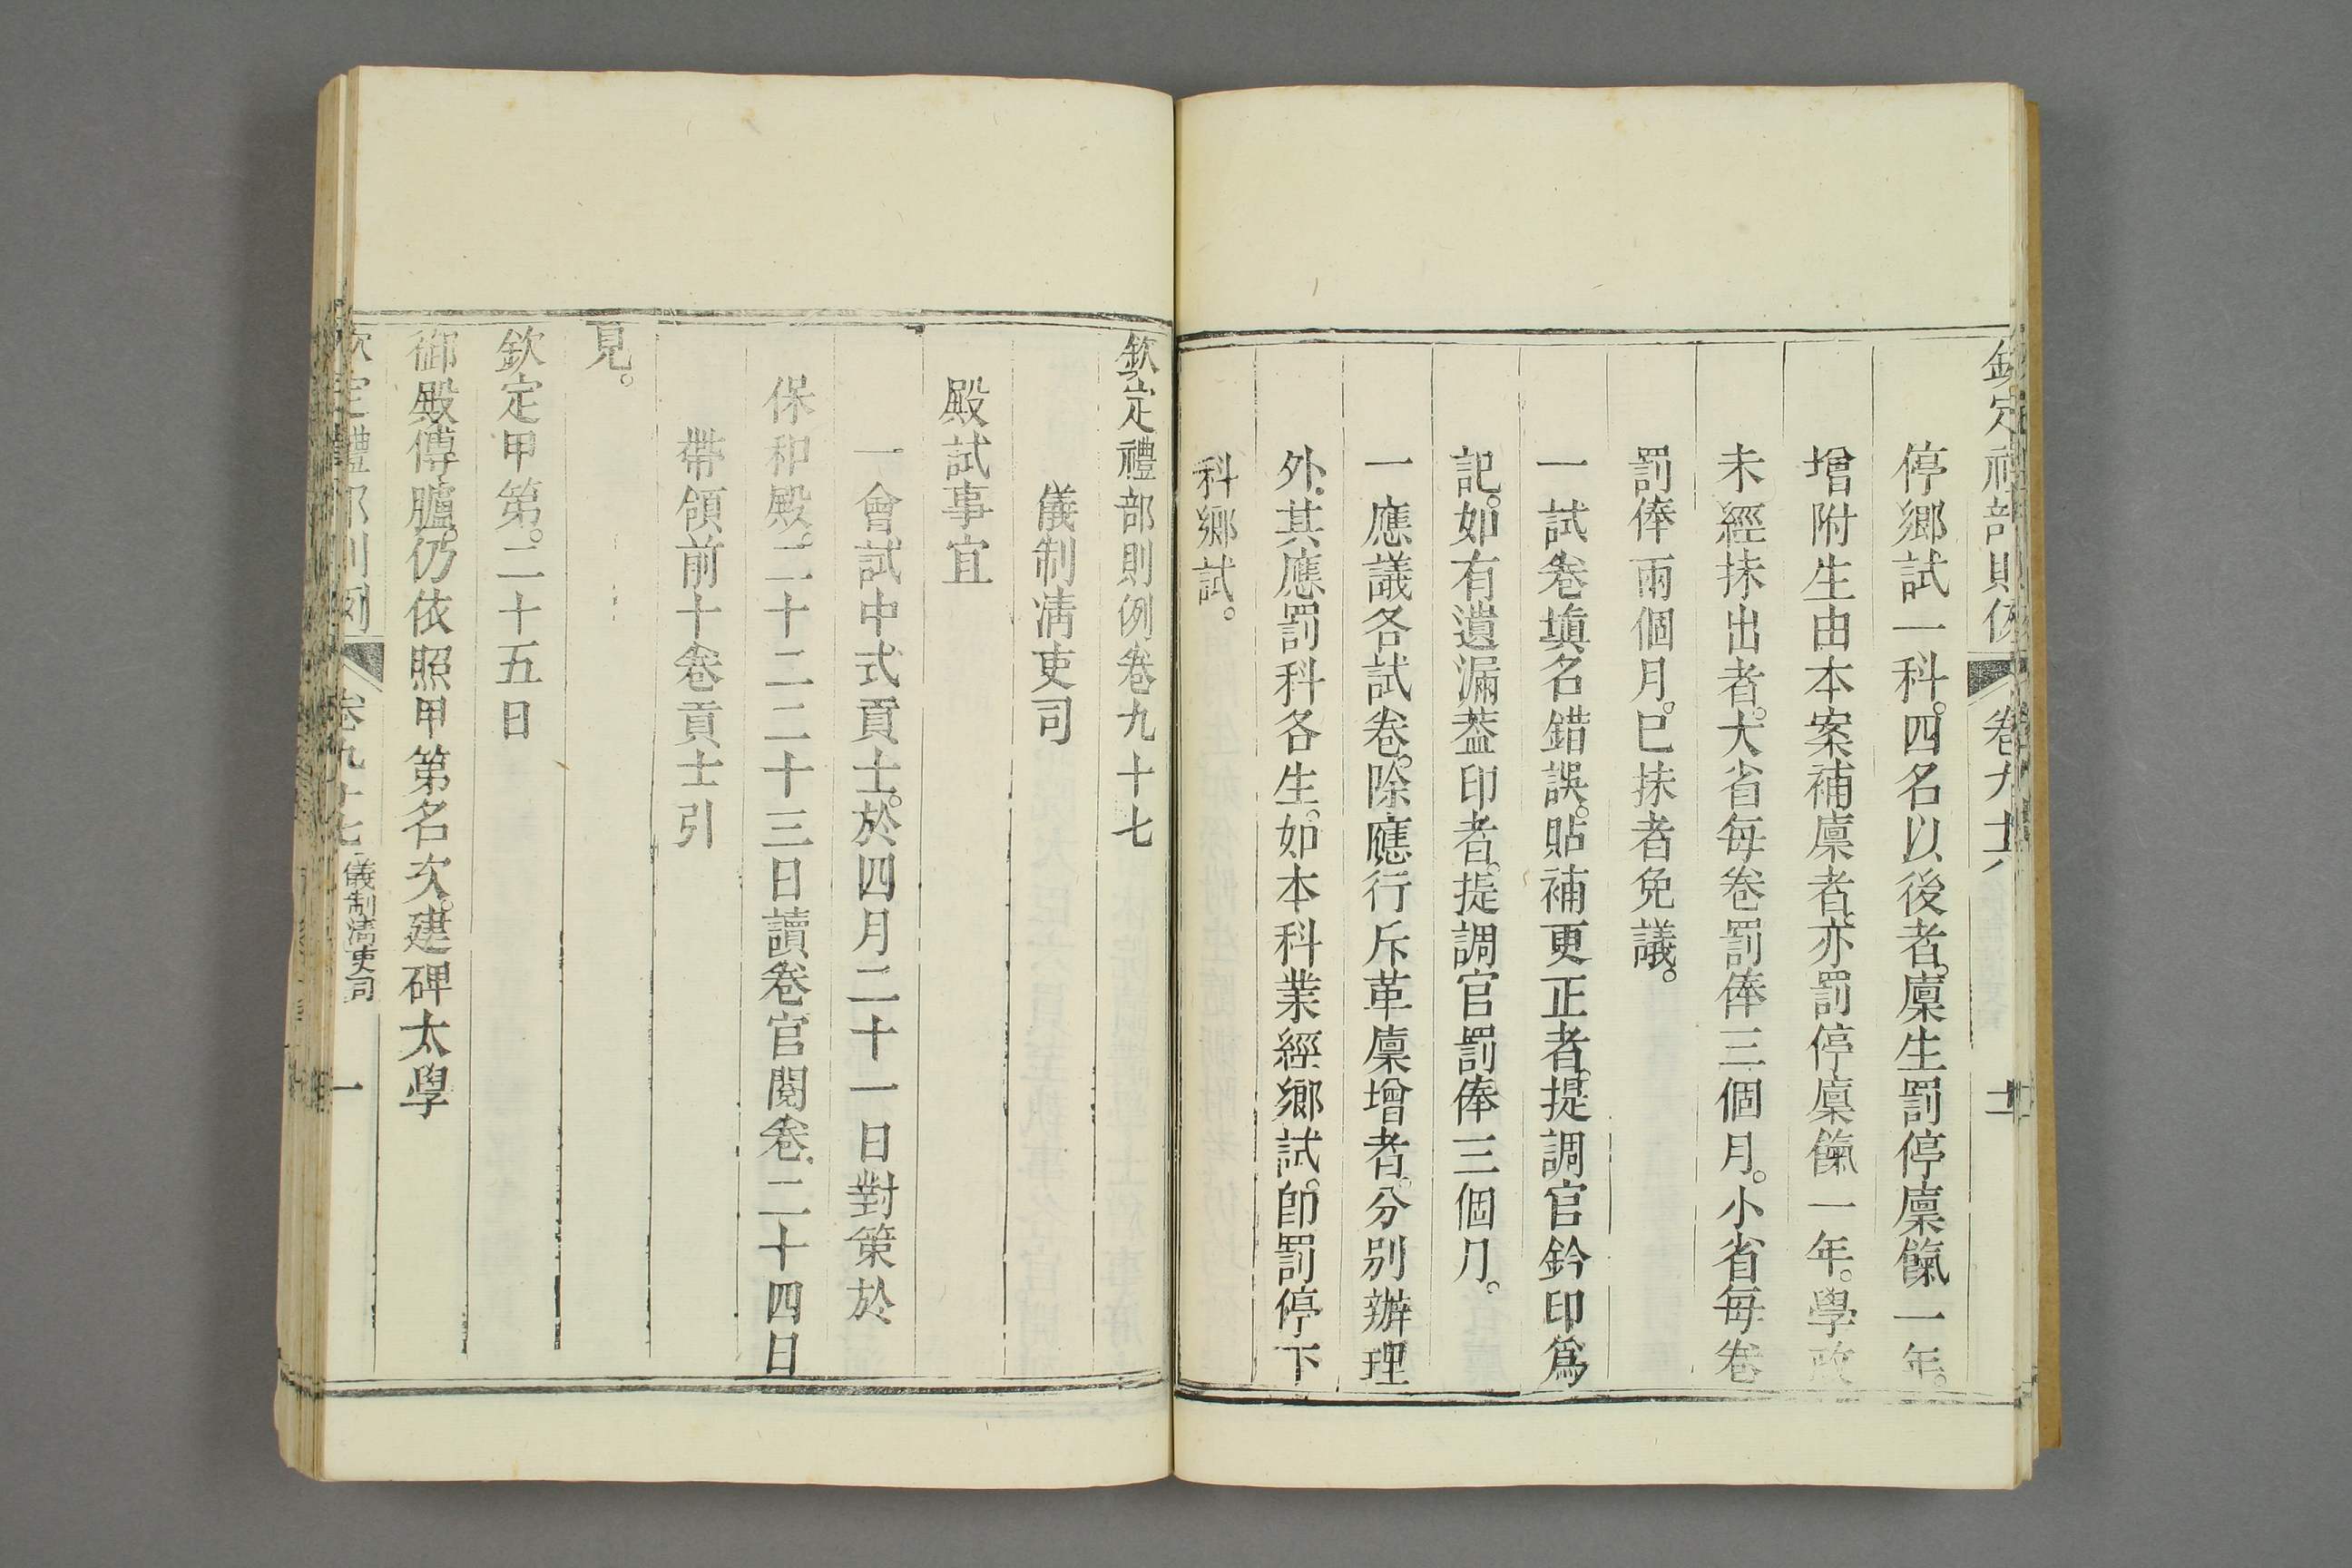 欽定禮部則例 卷九十六 十一
停鄉試一科。四名以後者。廩生罰停廩餼一年。
增附生由本案補廩者。亦罰停廩餼一年。學政
未經抹出者。大省每卷罰俸三個月。小省每卷
罰俸兩個月。已抹者免議。
一試卷塡名錯誤。貼補更正者。提調官鈐印爲
記。如有遺漏葢印者。提調官罰俸三個月。
一應議各試卷。除應行斥革廩增者。分别辦理
外。其應罰科各生。如本科業經鄉試。卽罰停下
科鄉試。
欽定禮部則例卷九十七
儀制淸吏司
殿試事宜
一會試中式貢士。於四月二十一日對策於
保和殿。二十二二十三日讀卷官閱卷。二十四日
帶領前十卷貢士引
見。
欽定甲第。二十五日
御殿傳臚。仍依照甲第名次。建碑太學
欽定禮部則例 卷九十七 儀制淸吏司 一